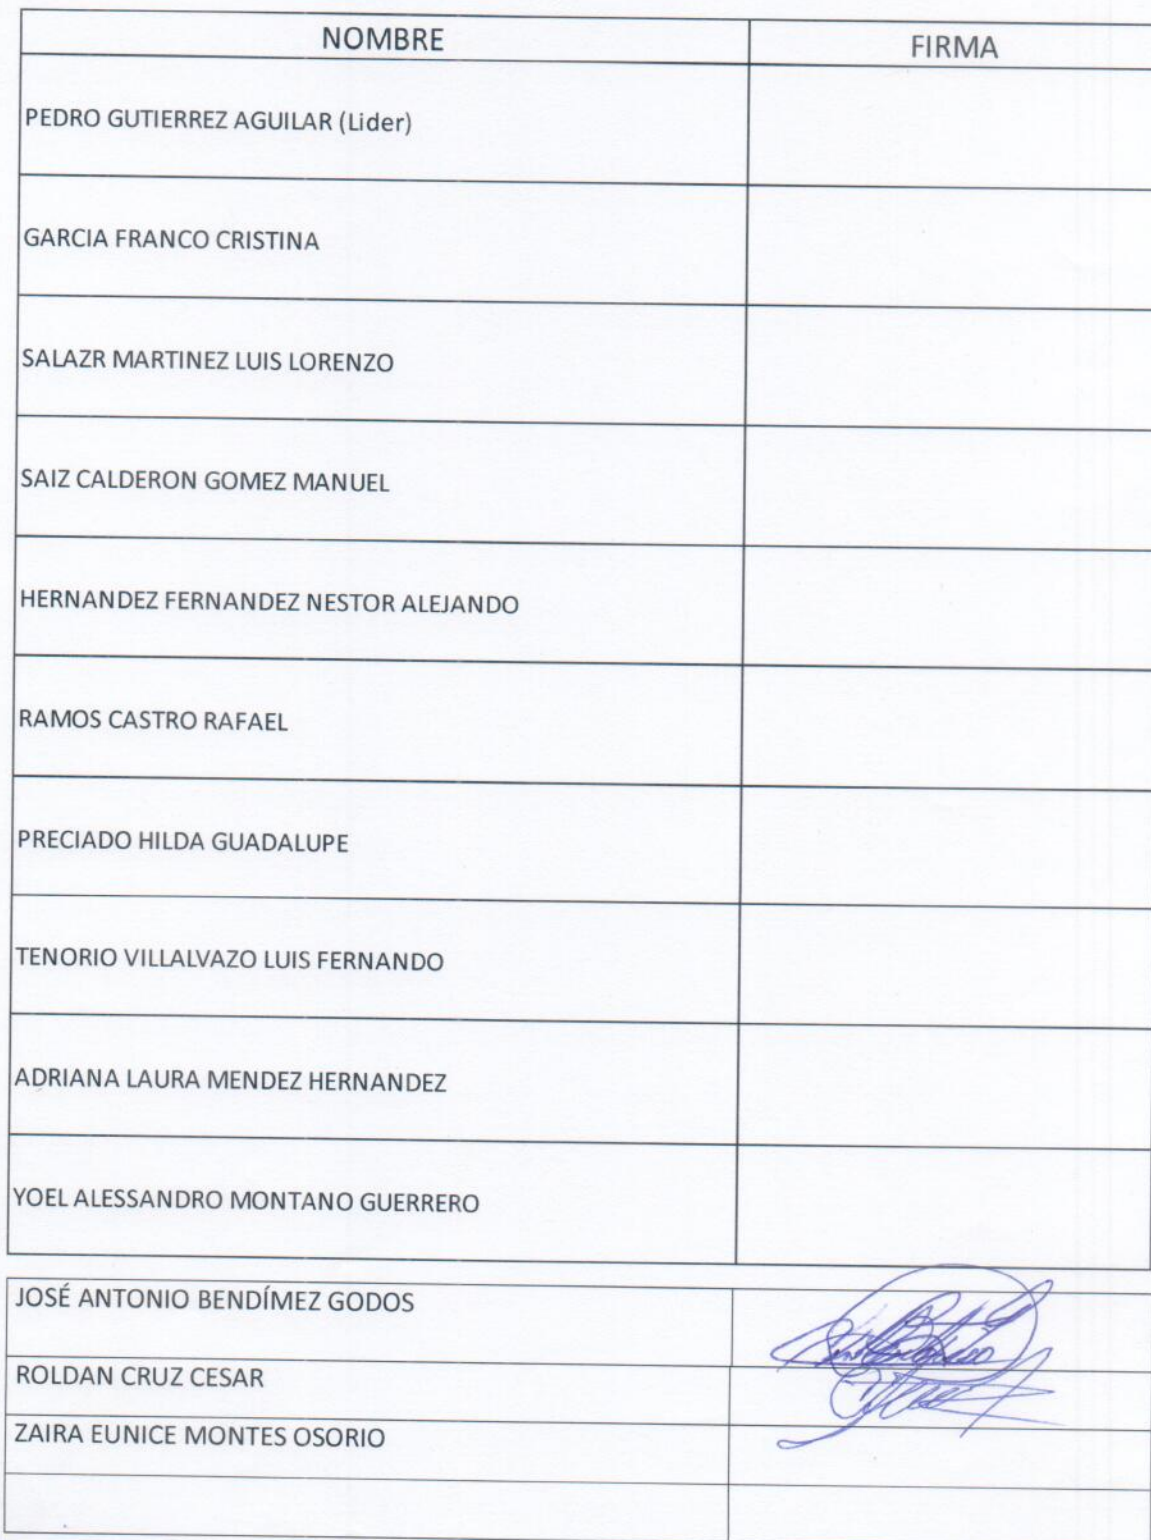 NOMBRE
FIRMA
PEDRO GUTIERREZ AGUILAR (Lider)
GARCIA FRANCO CRISTINA
SALAZR MARTINEZ LUIS LORENZO
SAIZ CALDERON GOMEZ MANUEL
HERNANDEZ FERNANDEZ NESTOR ALEJANDO
RAMOS CASTRO RAFAEL
PRECIADO HILDA GUADALUPE
TENORIO VILLALVAZO LUIS FERNANDO
ADRIANA LAURA MENDEZ HERNANDEZ
YOEL ALESSANDRO MONTANO GUERRERO
JOSÉ ANTONIO BENDÍMEZ GODOS
ROLDAN CRUZ CESAR
ZAIRA EUNICE MONTES OSORIO